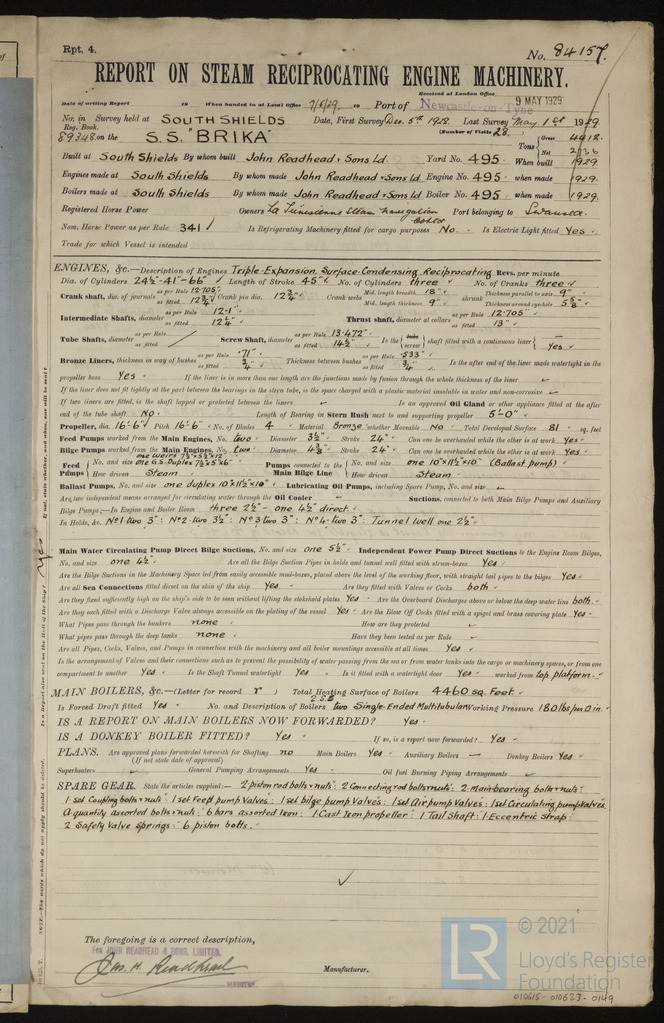 Rpt. 4.
No. 84157.
REPORT ON STEAM RECIPROCATING ENGINE MACHINERY.
Received at London Office
9 MAY 1929
Date of writing Report 19 When handed in at Local Office 7/5/29. 19 Port of Newcastle-on-Tyne
No. in Survey held at SOUTH SHIELDS Date, First Survey Dec. 5th 1928. Last Survey May 1st 1929.
Reg. Book. (Number of Visits 28.
89348 on the S.S. "BRIKA" Tons Gross 4412. Net 2736
Built at South Shields By whom built John Readhead & Sons Ld. Yard No. 495 When built 1929.
Engines made at South Shields By whom made John Readhead & Sons Ld Engine No. 495 when made 1929.
Boilers made at South Shields By whom made John Readhead & Sons Ld Boiler No. 495 when made 1929.
Registered Horse Power Owners La Tunisienne Steam Navigation Port belonging to Swansea.
Nom. Horse Power as per Rule 341 Is Refrigerating Machinery fitted for cargo purposes No Is Electric Light fitted Yes
Trade for which Vessel is intended
ENGINES, &c.—Description of Engines Triple-Expansion, Surface-Condensing, Reciprocating. Revs. per minute
Dia. of Cylinders 24½"-41"-66" Length of Stroke 45" No. of Cylinders three No. of Cranks three
Crank shaft, dia. of journals as per Rule 12.705" as fitted 12¾" Crank pin dia. 12¾" Crank webs Mid. length breadth 18" Mid. length thickness 9" shrunk Thickness parallel to axis 9" Thickness around eye-hole 5⅝"
Intermediate Shafts, diameter as per Rule 12.1" as fitted 12¼" Thrust shaft, diameter at collars as per Rule 12.705" as fitted 13"
Tube Shafts, diameter as per Rule as fitted Screw Shaft, diameter as per Rule 13.472" as fitted 14½" Is the tube screw shaft fitted with a continuous liner Yes
Bronze Liners, thickness in way of bushes as per Rule .71" as fitted ¾" Thickness between bushes as per Rule .533" as fitted ¾" Is the after end of the liner made watertight in the
propeller boss Yes If the liner is in more than one length are the junctions made by fusion through the whole thickness of the liner
If the liner does not fit tightly at the part between the bearings in the stern tube, is the space charged with a plastic material insoluble in water and non-corrosive
If two liners are fitted, is the shaft lapped or protected between the liners Is an approved Oil Gland or other appliance fitted at the after
end of the tube shaft No Length of Bearing in Stern Bush next to and supporting propeller 5'-0"
Propeller, dia. 16'-6" Pitch 16'-6" No. of Blades 4 Material Bronze whether Moveable No Total Developed Surface 81 sq. feet
Feed Pumps worked from the Main Engines, No. two Diameter 3½" Stroke 24" Can one be overhauled while the other is at work Yes
Bilge Pumps worked from the Main Engines, No. two Diameter 4⅜" Stroke 24" Can one be overhauled while the other is at work Yes
Feed Pumps No. and size one Weirs 7½"x5½"x12" one G.S. Duplex 7½"x5"x6" How driven Steam Pumps connected to the Main Bilge Line No. and size one 10"x11½"x10" (Ballast pump) How driven Steam
Ballast Pumps, No. and size one duplex 10"x11½"x10" Lubricating Oil Pumps, including Spare Pump, No. and size
Are two independent means arranged for circulating water through the Oil Cooler Suctions, connected to both Main Bilge Pumps and Auxiliary
Bilge Pumps;—In Engine and Boiler Room three 2½" - one 4½" direct
In Holds, &c. No 1 two 3" : No 2 two 3½" : No 3 two 3" : No 4 two 3" : Tunnel Well one 2½"
Main Water Circulating Pump Direct Bilge Suctions, No. and size one 5½" Independent Power Pump Direct Suctions to the Engine Room Bilges,
No. and size one 4½" Are all the Bilge Suction Pipes in holds and tunnel well fitted with strum-boxes Yes
Are the Bilge Suctions in the Machinery Space led from easily accessible mud-boxes, placed above the level of the working floor, with straight tail pipes to the bilges Yes
Are all Sea Connections fitted direct on the skin of the ship Yes Are they fitted with Valves or Cocks both
Are they fixed sufficiently high on the ship's side to be seen without lifting the stokehold plates Yes Are the Overboard Discharges above or below the deep water line both
Are they each fitted with a Discharge Valve always accessible on the plating of the vessel Yes Are the Blow Off Cocks fitted with a spigot and brass covering plate Yes
What Pipes pass through the bunkers none How are they protected
What pipes pass through the deep tanks none Have they been tested as per Rule
Are all Pipes, Cocks, Valves, and Pumps in connection with the machinery and all boiler mountings accessible at all times Yes
Is the arrangement of Valves and their connections such as to prevent the possibility of water passing from the sea or from water tanks into the cargo or machinery spaces, or from one
compartment to another Yes Is the Shaft Tunnel watertight Yes Is it fitted with a watertight door Yes worked from top platform
MAIN BOILERS, &c.—(Letter for record r) Total Heating Surface of Boilers 4460 sq. Feet
Is Forced Draft fitted Yes No. and Description of Boilers 2.S.B two Single-Ended Multitubular Working Pressure 180 lbs per □ in.
IS A REPORT ON MAIN BOILERS NOW FORWARDED? Yes
IS A DONKEY BOILER FITTED? Yes If so, is a report now forwarded? Yes
PLANS. Are approved plans forwarded herewith for Shafting no Main Boilers Yes Auxiliary Boilers Donkey Boilers Yes
(If not state date of approval)
Superheaters General Pumping Arrangements Yes Oil fuel Burning Piping Arrangements
SPARE GEAR. State the articles supplied:— 2 piston rod bolts & nuts : 2 Connecting rod bolts & nuts : 2 Main bearing bolts & nuts :
1 set Coupling bolts & nuts : 1 set Feed pump valves : 1 set bilge pump Valves : 1 set Air pump Valves : 1 set Circulating pump Valves
A quantity assorted bolts & nuts : 6 bars assorted Iron : 1 Cast Iron propeller : 1 Tail Shaft : 1 Eccentric Strap :
2 Safety Valve Springs : 6 piston bolts.
The foregoing is a correct description,
FOR JOHN READHEAD & SONS, LIMITED.
Jas. H. Readhead
DIRECTOR
Manufacturer.
© 2021
LR
Lloyd's Register
Foundation
010615-010623-0149